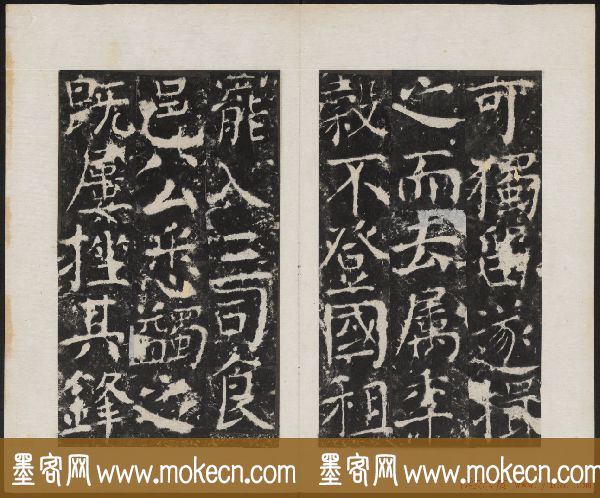 可獨留遂
之而去属年
穀不登國租
入三司食
邑公悉蠲之
既屢挫其鋒
墨客网 www.mokecn.com 墨客网 www.mokecn.com